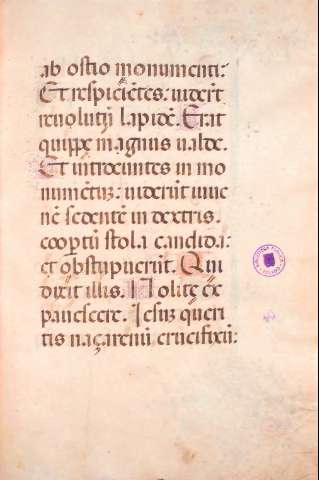 ab ostio monumenti:
Et respiciẽtes: uiderũt
reuolutũ lapidẽ. Erat
quippe magnus ualde.
Et introeuntes in mo
numẽtum: uiderũt iuue
nẽ sedentẽ in dextris.
coopertũ stola candida:
et obstupuerũt. Qui
dixit illis. Nolite ex
pauescere. Iesum queri
tis naçarenũ crucifixũ: